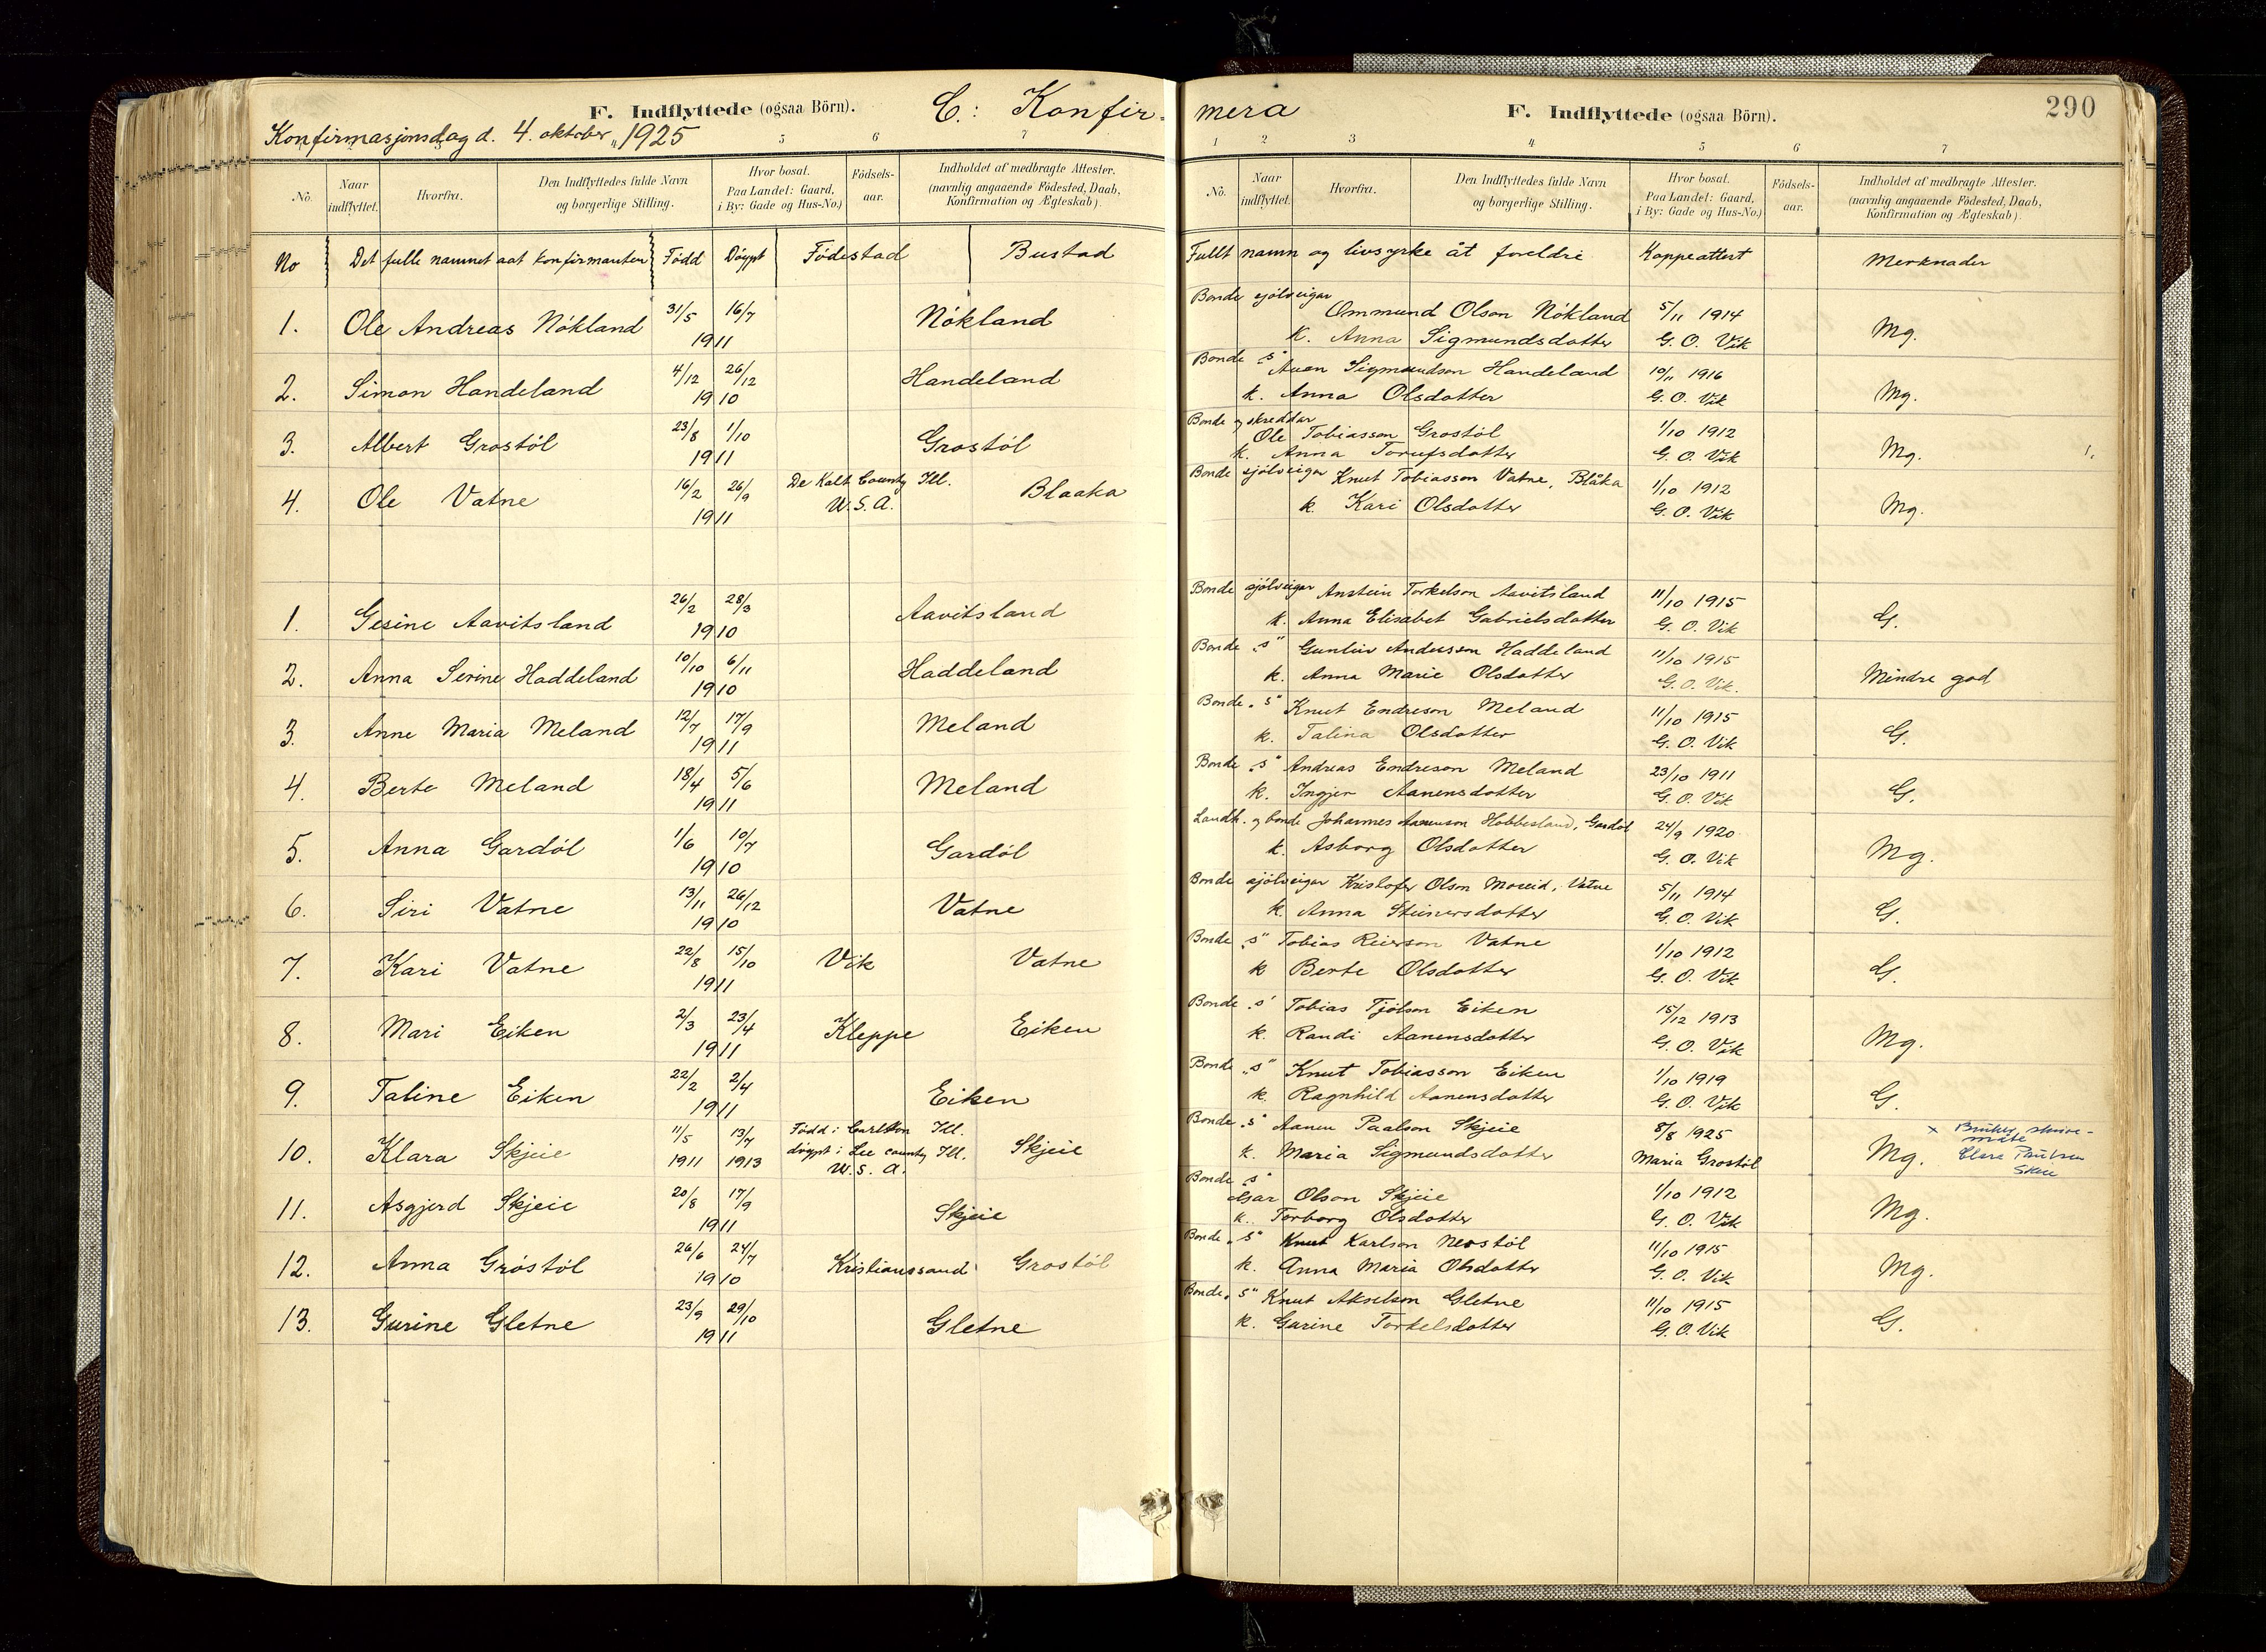 F. Indflyttede (ogsaa Börn). C: Konfir-
Konfirmasjonsdag d. 4. oktober 1925
5 6 7
No. Naar indflyttet. Hvorfra. Den Indflyttedes fulde Navn og borgerlige Stilling. Hvor bosat. Paa Landet: Gaard, i By: Gade og Hus-No.) Födsels-aar. Indholdet af medbragte Attester. (navnlig angaaende Födested, Daab, Konfirmation og Ægteskab).
No Det fulle namnet aat konfirmanten Född Döypt Födestad Bustad
1. Ole Andreas Nökland 31/5 16/7 1911 Nökland
2. Simon Handeland 4/12 26/12 1910 Handeland
3. Albert Grostöl 23/8 1/10 1911 Grostöl
4. Ole Vatne 16/2 26/9 1911 De Kalb County Ill. U.S.A. Blaaka
1. Gesine Aavitsland 26/2 28/3 1910 Aavitsland
2. Anna Serine Haddeland 10/10 6/11 1910 Haddeland
3. Anne Maria Meland 12/7 17/9 1911 Meland
4. Berte Meland 18/4 5/6 1911 Meland
5. Anna Gardöl 1/6 10/7 1910 Gardöl
6. Siri Vatne 13/11 26/12 1910 Vatne
7. Kari Vatne 22/8 15/10 1911 Vik Vatne
8. Mari Eiken 2/3 23/4 1911 Kleppe Eiken
9. Taline Eiken 22/2 2/4 1911 Eiken
10. Klara Skjeie 11/5 1911 13/7 1913 Född i Carlton Ill. döypt i Lee county Ill. U.S.A. Skjeie
11. Asgjerd Skjeie 20/8 17/9 1911 Skjeie
12. Anna Gröstöl 26/6 24/7 1910 Kristianssand Grostöl
13. Gurine Gletne 23/9 29/10 1911 Gletne
mera F. Indflyttede (ogsaa Börn). 290
1 2 3 4 5 6 7
No. Naar indflyttet. Hvorfra. Den Indflyttedes fulde Navn og borgerlige Stilling. Hvor bosat. Paa Landet: Gaard, i By: Gade og Hus-No.) Födsels-aar. Indholdet af medbragte Attester. (navnlig angaaende Födested, Daab, Konfirmation og Ægteskab).
Fullt namn og livsyrke åt foreldre Koppeattest Merknader
Bonde sjölveigar
Ommund Olson Nökland 5/11 1914
k. Anna Sigmundsdotter G. O. Vik Mg.
Bonde "s" Anen Sigmundson Handeland 10/11 1916
k. Anna Olsdotter G. O. Vik Mg.
Bonde og skreddar
Ole Tobiasson Grostöl 1/10 1912
k. Anna Torufsdotter G. O. Vik Mg.
Bonde sjölveigar Knut Tobiasson Vatne, Blåka 1/10 1912
k. Kari Olsdotter G. O. Vik Mg.
Bonde sjölveigar Anstein Torkelson Aavitsland 11/10 1915
k. Anna Elisabet Gabrielsdotter G. O. Vik G.
Bonde "s" Gunleiv Andersson Haddeland 11/10 1915
k. Anna Marie Olsdotter G. O. Vik. Mindre god
Bonde "s" Knut Endreson Meland 11/10 1915
k. Talina Olsdotter G. O. Vik G.
Bonde "s" Andreas Endreson Meland 23/10 1911
k. Ingjer Aanensdotter G. O. Vik G.
Landh. og bonde Johannes Aanenson Hobbesland, Gardöl 24/9 1920
k. Asborg Olsdotter G. O. Vik Mg.
Bonde sjölveigar Kristofer Olson Moseid, Vatne 5/11 1914
k. Anna Steinersdotter G. O. Vik G.
Bonde "s" Tobias Reierson Vatne 1/10 1912
k Berte Olsdotter G. O. Vik G.
Bonde "s" Tobias Tjölson Eiken 15/12 1913
k. Randi Aanensdotter G. O. Vik Mg.
Bonde "s" Knut Tobiasson Eiken 1/10 1919
k. Ragnhild Aanensdotter G. O. Vik G.
Bonde "s" Aanen Paalson Skjeie 8/8 1925 x Bruker skrive-
k. Maria Sigmundsdotter Maria Grostöl Mg. måte
Clara Paulsen
Skeie
Bonde "s"
Olson Skjeie 1/10 1912
k. Torborg Olsdotter G. O. Vik Mg.
Bonde "s" Knut Karlson Nerstöl 11/10 1915
k. Anna Maria Olsdotter G. O. Vik Mg.
Bonde "s" Knut Akselson Gletne 11/10 1915
k. Gurine Torkelsdotter G. O. Vik G.